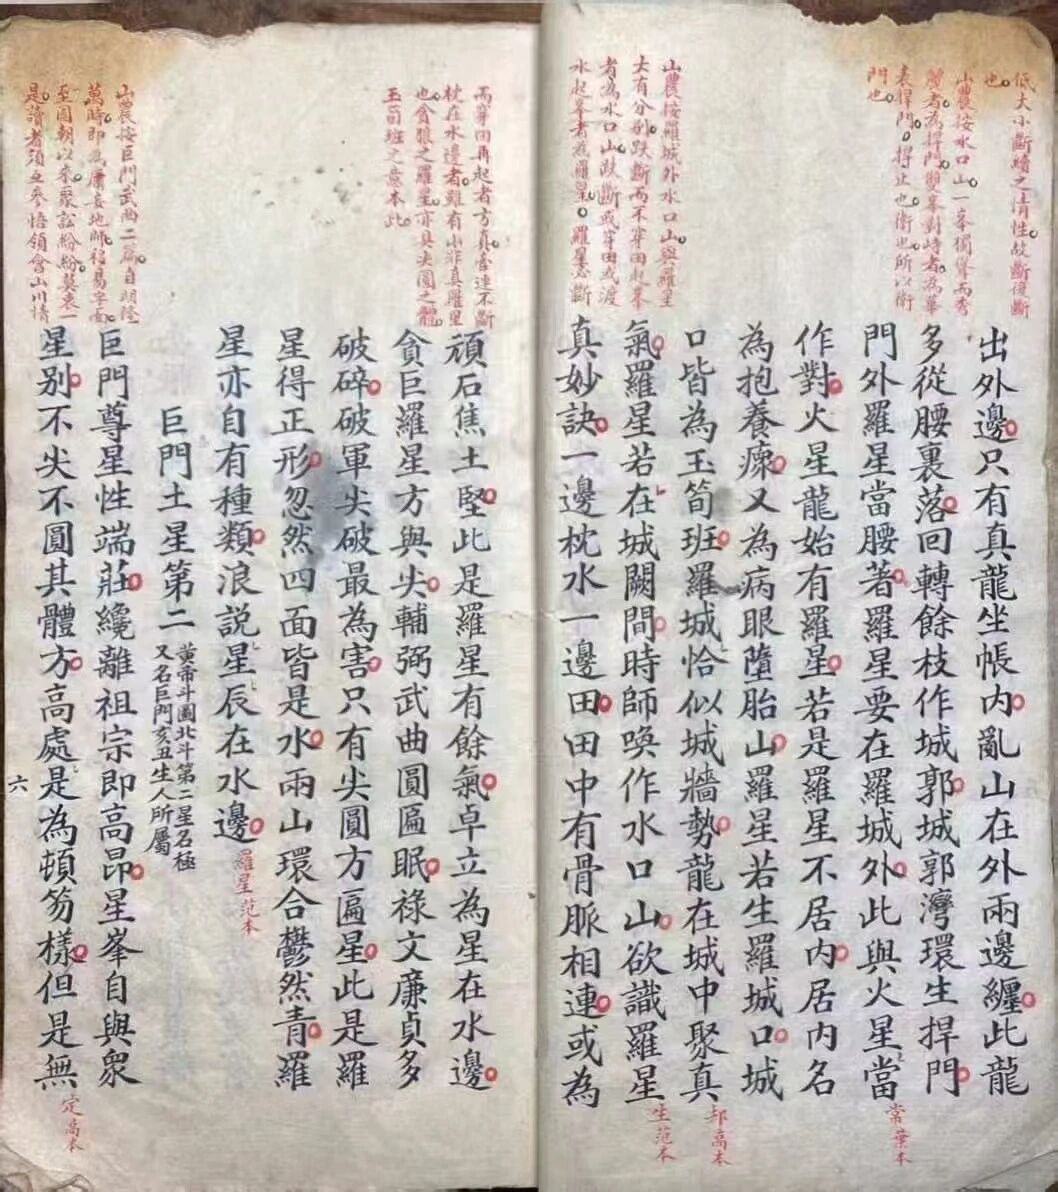 低大小斷續之情性故斷復斷
也
山農按水口山一峯獨聳而秀
麗者為捍門雙峯對峙者為華
表捍門捍止也衛也所以衛
門也
山農按羅城外水口山與羅星
大有分別跌斷而不穿田起峯
者為水口山跌斷或穿田或渡
水起峯者為羅星羅星忌斷
出外邊只有真龍坐帳內亂山在外兩邊纏此龍
多從腰裏落回轉餘枝作城郭城郭灣環生捍門
門外羅星當腰著羅星要在羅城外此與火星當
作對火星龍始有羅星若是羅星不居內居內名
為抱養瘝又為病眼墮胎山羅星若生羅城口城
口皆為玉筍班羅城恰似城牆勢龍在城中聚真
氣羅星若在城闕間時師喚作水口山欲識羅星
真妙訣一邊枕水一邊田田中有骨脈相連或為
常葉本
却高本
生范本
而穿田再起者方真若連不斷
枕在水邊者雖有小非真羅星
也貪狼之羅星亦具尖圓之體
玉筍班之意本此
山農按巨門武曲二篇自明隆
萬時即為庸妄地師移易字句
至國朝以來聚訟紛紛莫衷一
是讀者須互參悟領會山川情
頑石焦土堅此是羅星有餘氣卓立為星在水邊
貪巨羅星方與尖輔弼武曲圓匾眠祿文廉貞多
破碎破軍尖破最為害只有尖圓方匾星此是羅
星得正形忽然四面皆是水兩山環合鬱然青羅
星亦自有種類浪說星辰在水邊
羅星范本
巨門土星第二
黃帝斗圖北斗第二星名極
又名巨門亥丑生人所屬
巨門尊星性端莊纔離祖宗即高昂星峯自與眾
星別不尖不圓其體方高處是為頓笏樣但是無
定高本
六